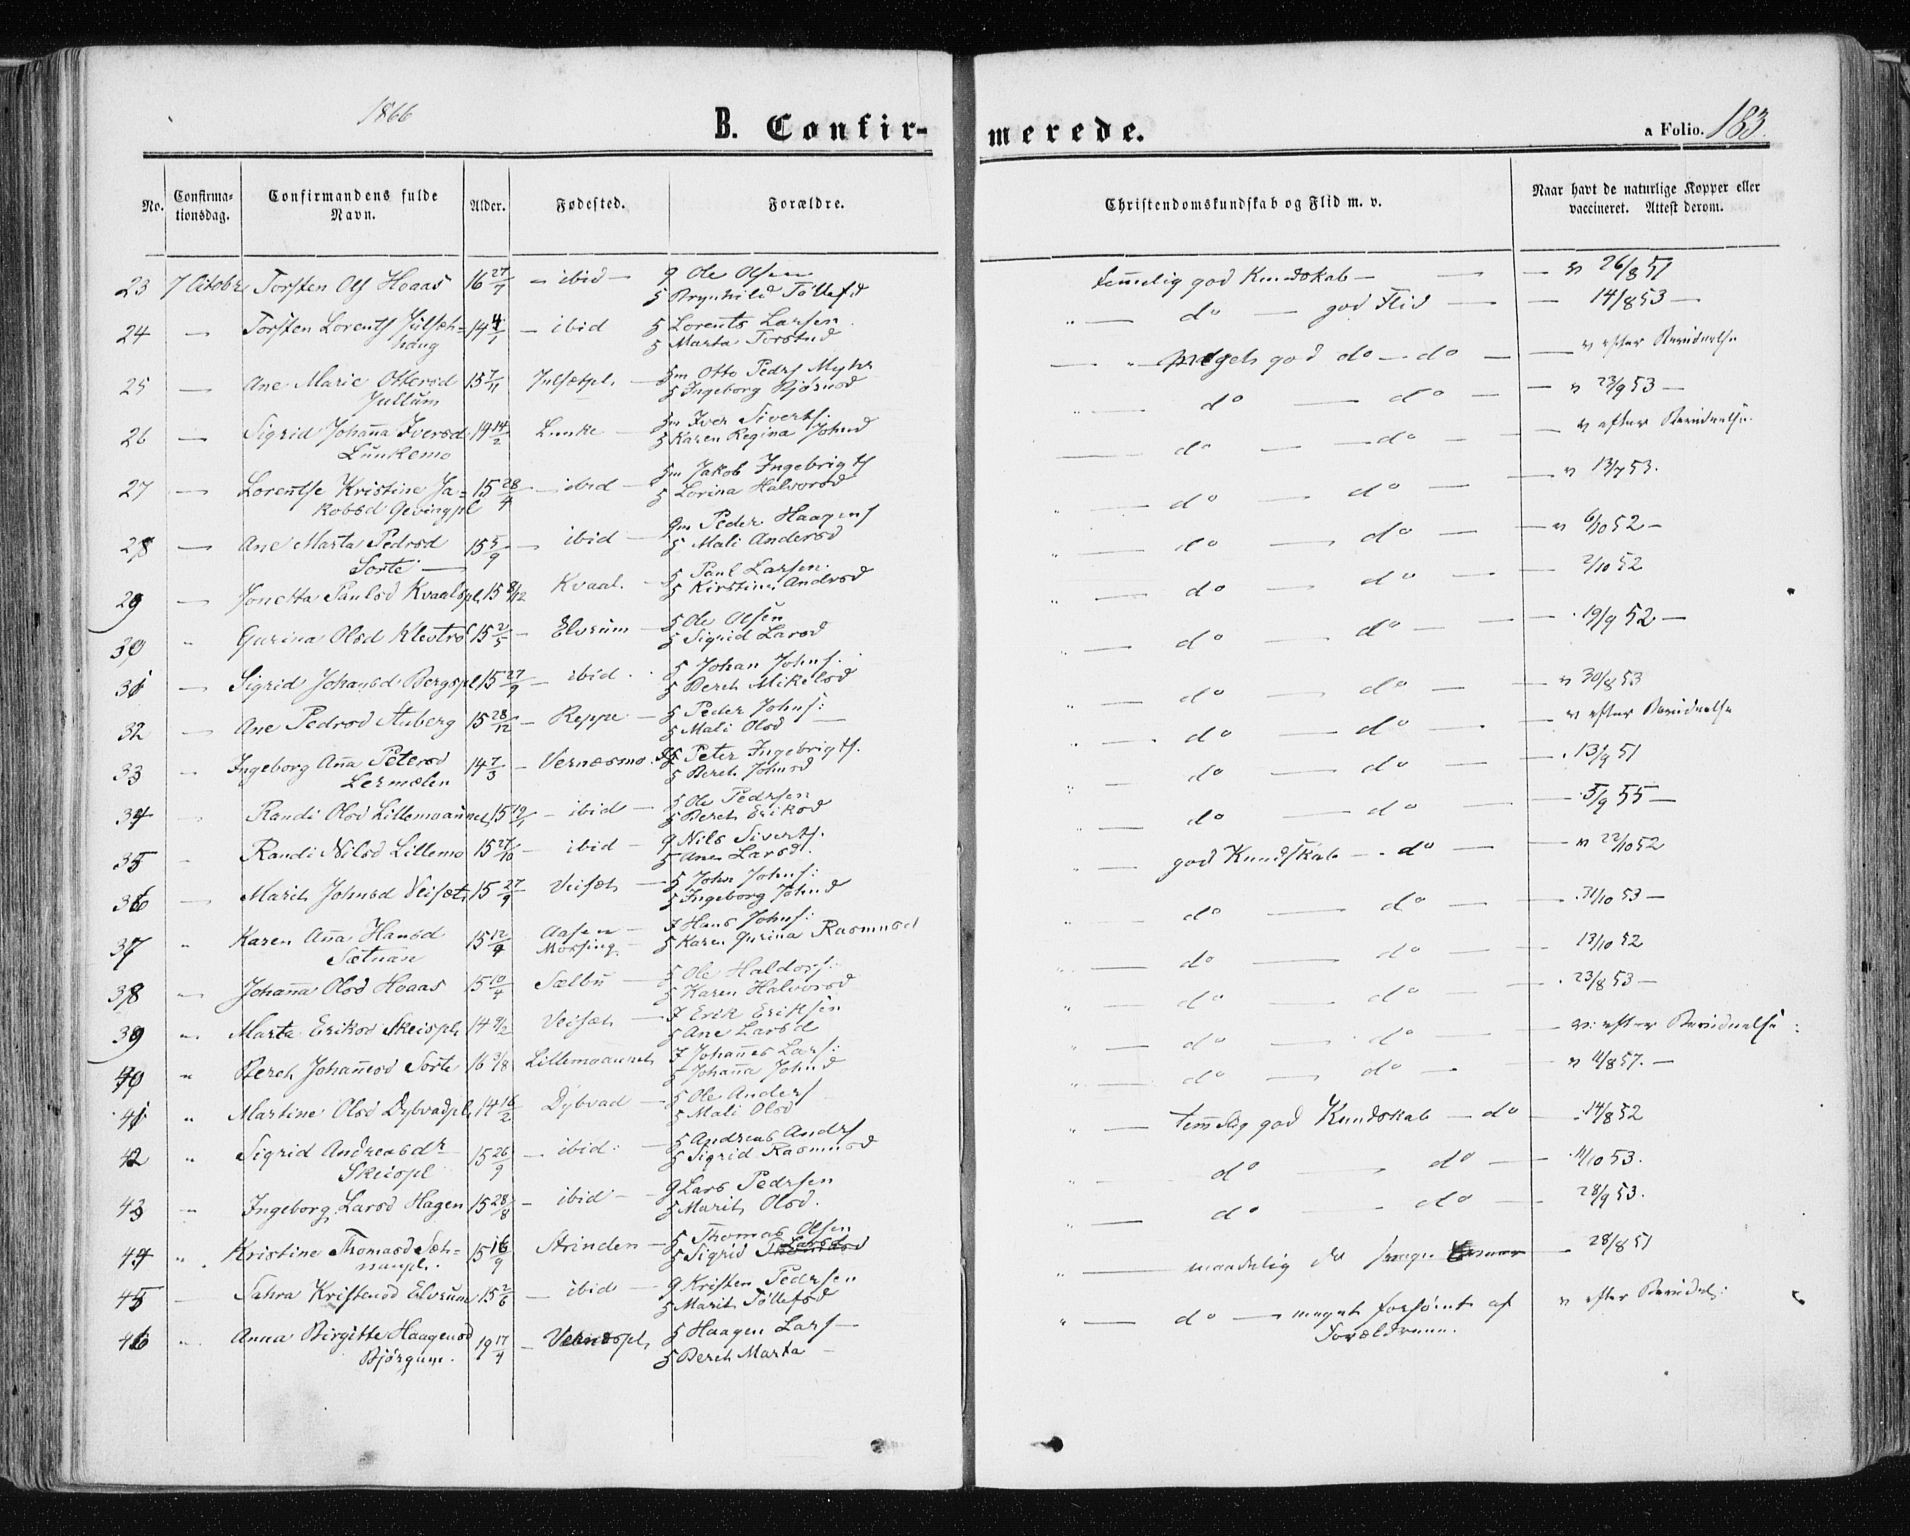 1866
B. Confir- merede.
a Folio. 183.
No. Confirma-tionsdag. Confirmandens fulde Navn. Alder. Fødested. Forældre. Christendomskundskab og Flid m. v. Naar havt de naturlige Kopper eller vaccineret. Attest derom.
23 7 Octobr Torsten Ols Hoaas 16 27/7 – ibid – g Ole Olsen
5 Brynhild Tollefd
Temmelig god Kundskab — v 26/8 51
24 — Torsten Lorents Julseth-
haug 14 4/1 – ibid 5 Lorents Larsen
5 Marta Torstnd
do — god Flid — 14/8 53 —
25 — Ane Marie Ottersd
Jullum 15 7/11 Julsetpl. 5m Otto Pedrs Myhr
5 Ingeborg Bjørnsd
meget god do – do — v efter Beviduelse
26 — Sigrid Johanna Iversd
Lunkemo 19 14/2 Lunke 5m Iver Siverts:
5 Karen Regina Johnd
do — do — v 23/9 53 —
27 — Lorentse Kristine Ja-
kobsd Gevingpl 15 28/4 – ibid 5m Jakob Ingebrigts
5 Lorina Halvorsd
do — do — v efter Beviduelse
28 — Ane Marta Pedrsd
Sorte — 15 5/9 – ibid – gm Peder Haagens
5 Mali Andersd
do — do — v 13/7 53.
29 — Jonetta Paulsd Kvaalspl. 15 8/12 Kvaal. 5 Paul Larsen.
5 Kirstine Andrsd
do — do — v 6/10 52 —
30 " Gurina Olsd Klevtrø 15 2/5 – Elvrum – 5 Ole Olsen
5 Sigrid Larsd
do — do — 2/10 52
31 — Sigrid Johansd Bergspl 15 27/9 – ibid. 5 Johan Johns:
5 Bereth Mikelsd
do — do — 19/9 52 —
32 — Ane Pedrsd Auberg 15 28/12 – Reppe – 5 Peder Johns:
5 Mali Olsd —
do — do — v 30/8 53
33 " Ingeborg Anna Petersd
Lermælen 14 7/3 – Vernæsmo. Peter Ingebrigts.
5 Bereth Johnsd
do — do — v efter Beviduelse
34 " Randi Olsd Lillemoaunet 15 – ibid – 5 Ole Pedrsen
5 Bereth Eriksd
do — do — 13/9 51
35 " Randi Nilsd Lillemo 15 27/10 – ibid – g Nils Siverts.
5 Ane Larsd.
do — do — 5/9 55 —
36 " Marith Johnsd Veiseth 15 27/9 Veiseth – 5 John Johns:
5 Ingeborg Johnd
god Kundskab — do — v 22/10 52
37 " Karen Anna Hansd
Sætnan 15 12/4 Aasen –
Mossing. 7 Hans Johns:
5 Karen Gurina Rasmusd
do — do — 31/10 53 —
38 " Johanna Olsd Hoaas 15 10/4 Sælbu 5 Ole Haldors:
5 Karen Halvorsd
do — do — 13/10 52
39 " Marta Eriksd Skeispl. 14 9/2 Veiseth – 7 Erik Eriksen
5 Ane Larsd
do — do — 23/8 53 —
40 " Bereth Johannesd Sorte 16 3/8 Lillemoaunet 7 Johannes Lars:
5 Johanna Johnd
do — do — v. efter Beviduelse
41 " Martine Olsd Dybvadpl. 14 16/2 Dybvad – 5 Ole Anders
5 Mali Olsd
do — do — v 11/8 57. —
42 " Sigrid Andreasdr
Skeispl 15 26/9 – ibid: 5 Andreas Andrs
5 Sigrid Rasmusd
temmelig god Kundskab — do — 14/8 52
43 " Ingeborg Larsd Hagen 15 28/8 – ibid – g Lars Pedrsen
5 Marith Olsd.
do — do — 11/10 53.
44 " Kristine Thomasd Sæth-
naupl. 15 16/9 Strinden – 5 Thomas Olsen
5 Sigrid Larsd
do — do — 28/9 53.
45 — Sahra Kristensd Elvrum 15 2/6 – ibid – g Kristen Pedrsen
5 Marith Tollefsd
maadelig do — 28/8 51
46 " Anna Birgitte Haagensd
Bjørgum. 19 17/4 – Vernespl. 5 Haagen Lars –
5 Bereth Marta –
do — meget forsømt af
Forældrene. v efter Beviduel: